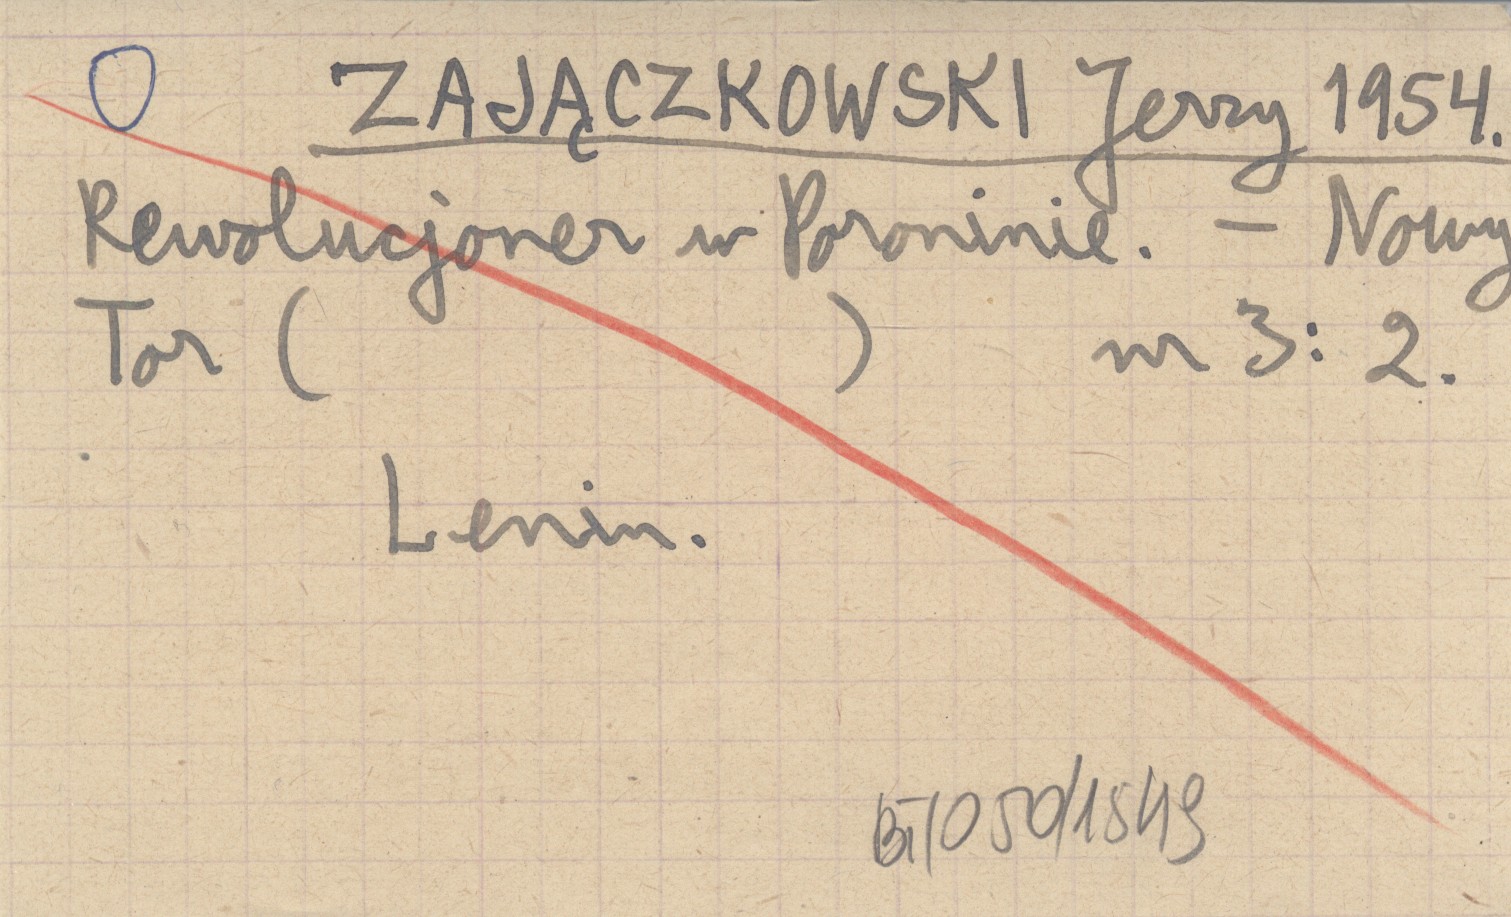 O ZAJĄCZKOWSKI Jerzy 1954.
Rewolucjoner w Poroninie. – Nowy
Tor ( ) nr 3: 2.
Lenin.
BT/050/1549